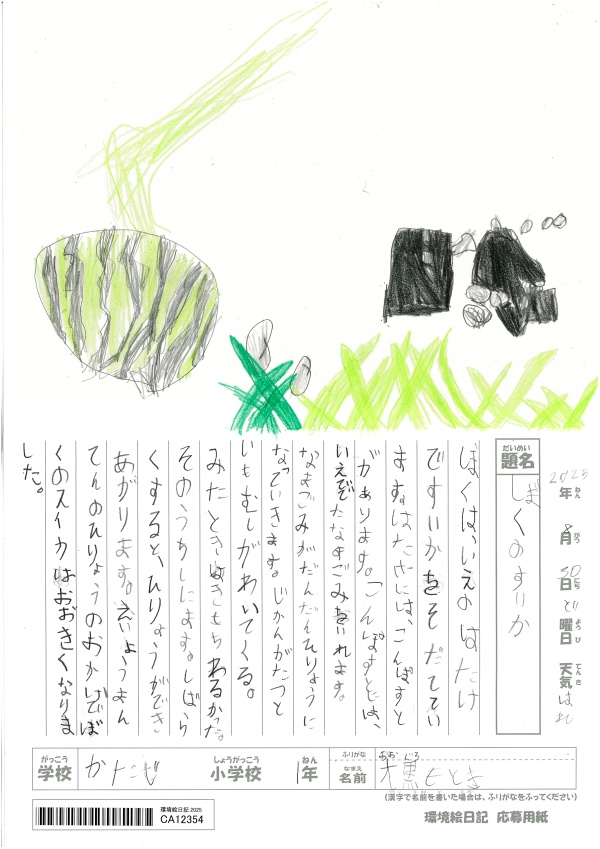 2025年ねん 8月がつ 30日にち どよう曜日び 天気てんき はれ
題名だいめい
ぼくのすいか
ぼくは、いえのはたけ
ですいかをそだててい
ます。はたけには、こんぽすと
があります。こんぽすとは、
いえででたなまごみをいれます。
なまごみがだんだんひりょうに
なっていきます。じかんがたつと
いもむしがわいてくる。
みたときはきもちわるかった。
そのうちしにます。しばらく
くすると、ひりょうができ
あがります。えいようまん
てんのひりょうのおかげでぼ
くのスイカはおおきくなりま
した。
学校がっこう かたひら 小学校しょうがっこう 1年ねん ふりがな 名前なまえ おおぐろ 大黒もとき
(漢字で名前を書いた場合は、ふりがなをふってください)
環境絵日記 2025
CA12354
環境絵日記 応募用紙